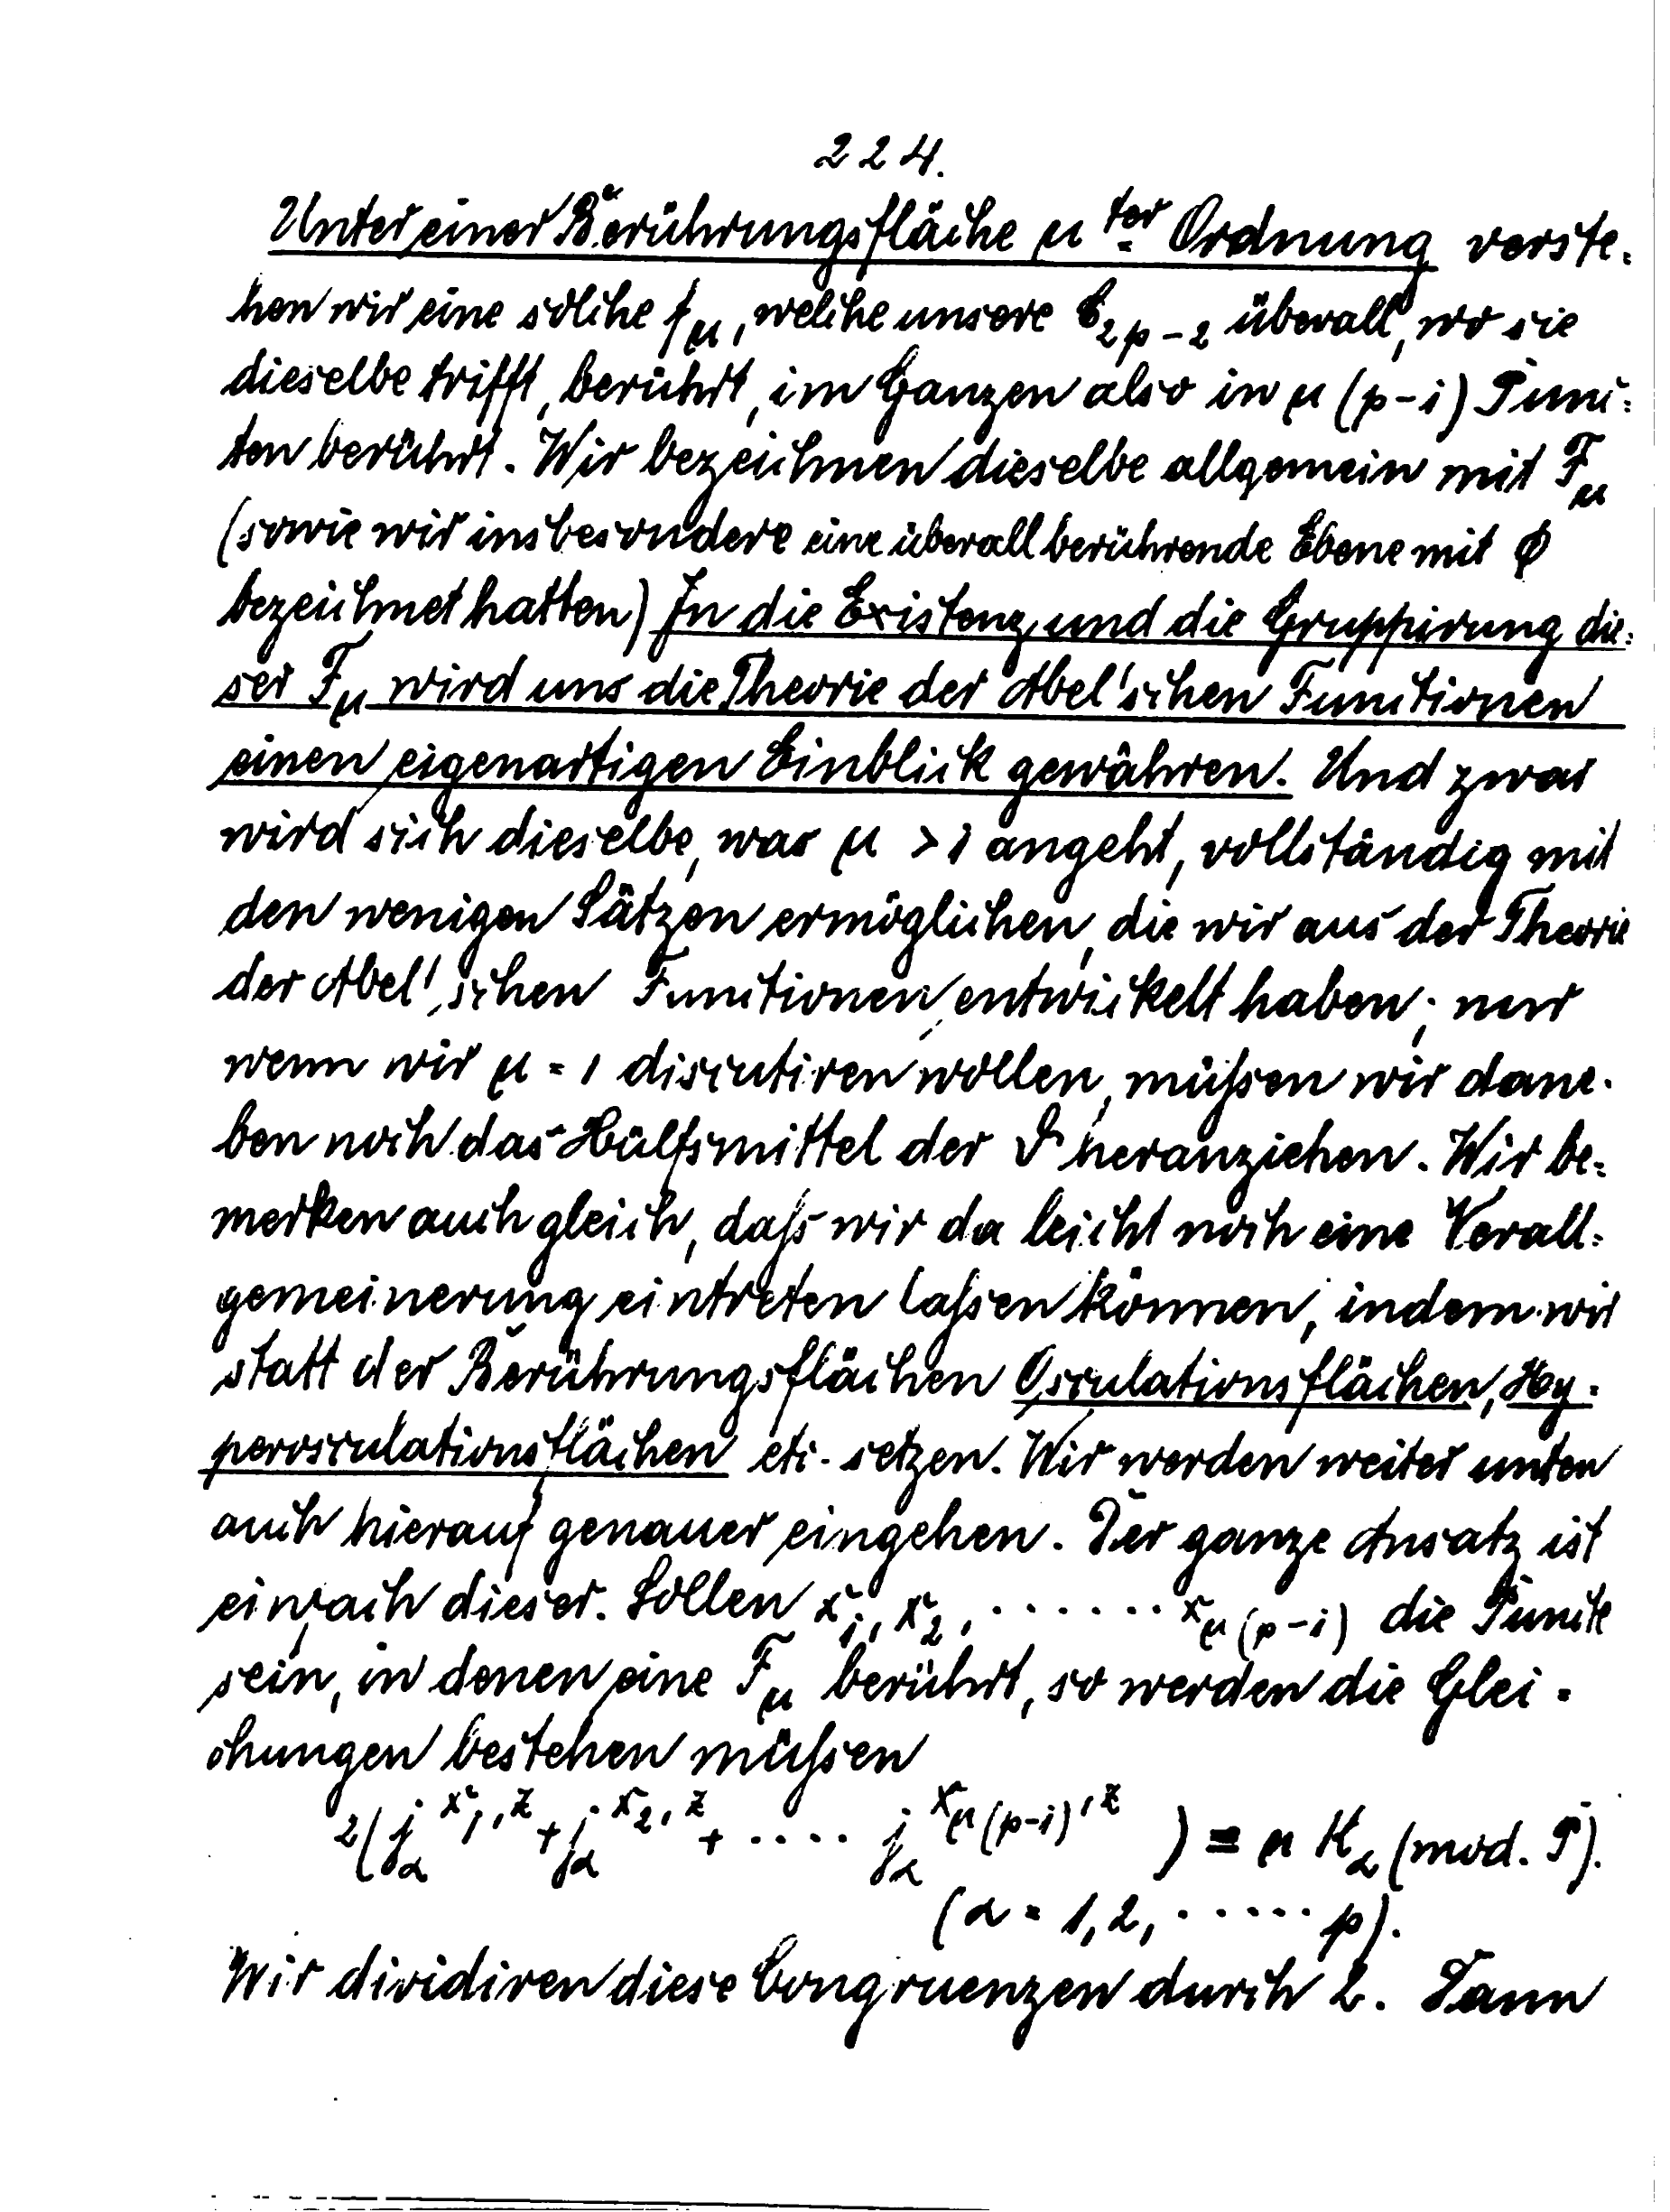 224.
Unter einer Berührungsfläche μ ter Ordnung verste-
hen wir eine solche f_μ, welche unsere C_{2p-2} überall, wo sie
dieselbe trifft, berührt, im Ganzen also in μ (p-1) Punc-
ten berührt. Wir bezeichnen dieselbe allgemein mit F_μ
(sowie wir insbesondere eine überall berührende Ebene mit ϕ
bezeichnet hatten) In die Existenz und die Gruppirung die-
ser F_μ wird uns die Theorie der Abel'schen Functionen
einen eigenartigen Einblick gewähren. Und zwar
wird sich dieselbe, was μ > 1 angeht, vollständig mit
den wenigen Sätzen ermöglichen, die wir aus der Theorie
der Abel'schen Functionen entwickelt haben; nur
wenn wir μ = 1 discutiren wollen, müssen wir dane-
ben noch das Hülfsmittel der ϑ heranziehen. Wir be-
merken auch gleich, dass wir da leicht noch eine Verall-
gemeinerung eintreten lassen können, indem wir
statt der Berührungsflächen Osculationsflächen, Hy-
perosculationsflächen etc. setzen. Wir werden weiter unten
auch hierauf genauer eingehen. Der ganze Ansatz ist
einfach dieser. Sollen x_1, x_2, ....... x_{μ(p-1)} die Puncte
sein, in denen eine F_μ berührt, so werden die Glei-
chungen bestehen müssen
2(j_α^{x_1, z} + j_α^{x_2, z} + .... j_α^{x_{μ(p-1)}, z}) ≡ μ K_α (mod. P).
(α = 1, 2, ..... p).
Wir dividiren diese Congruenzen durch 2. Dann